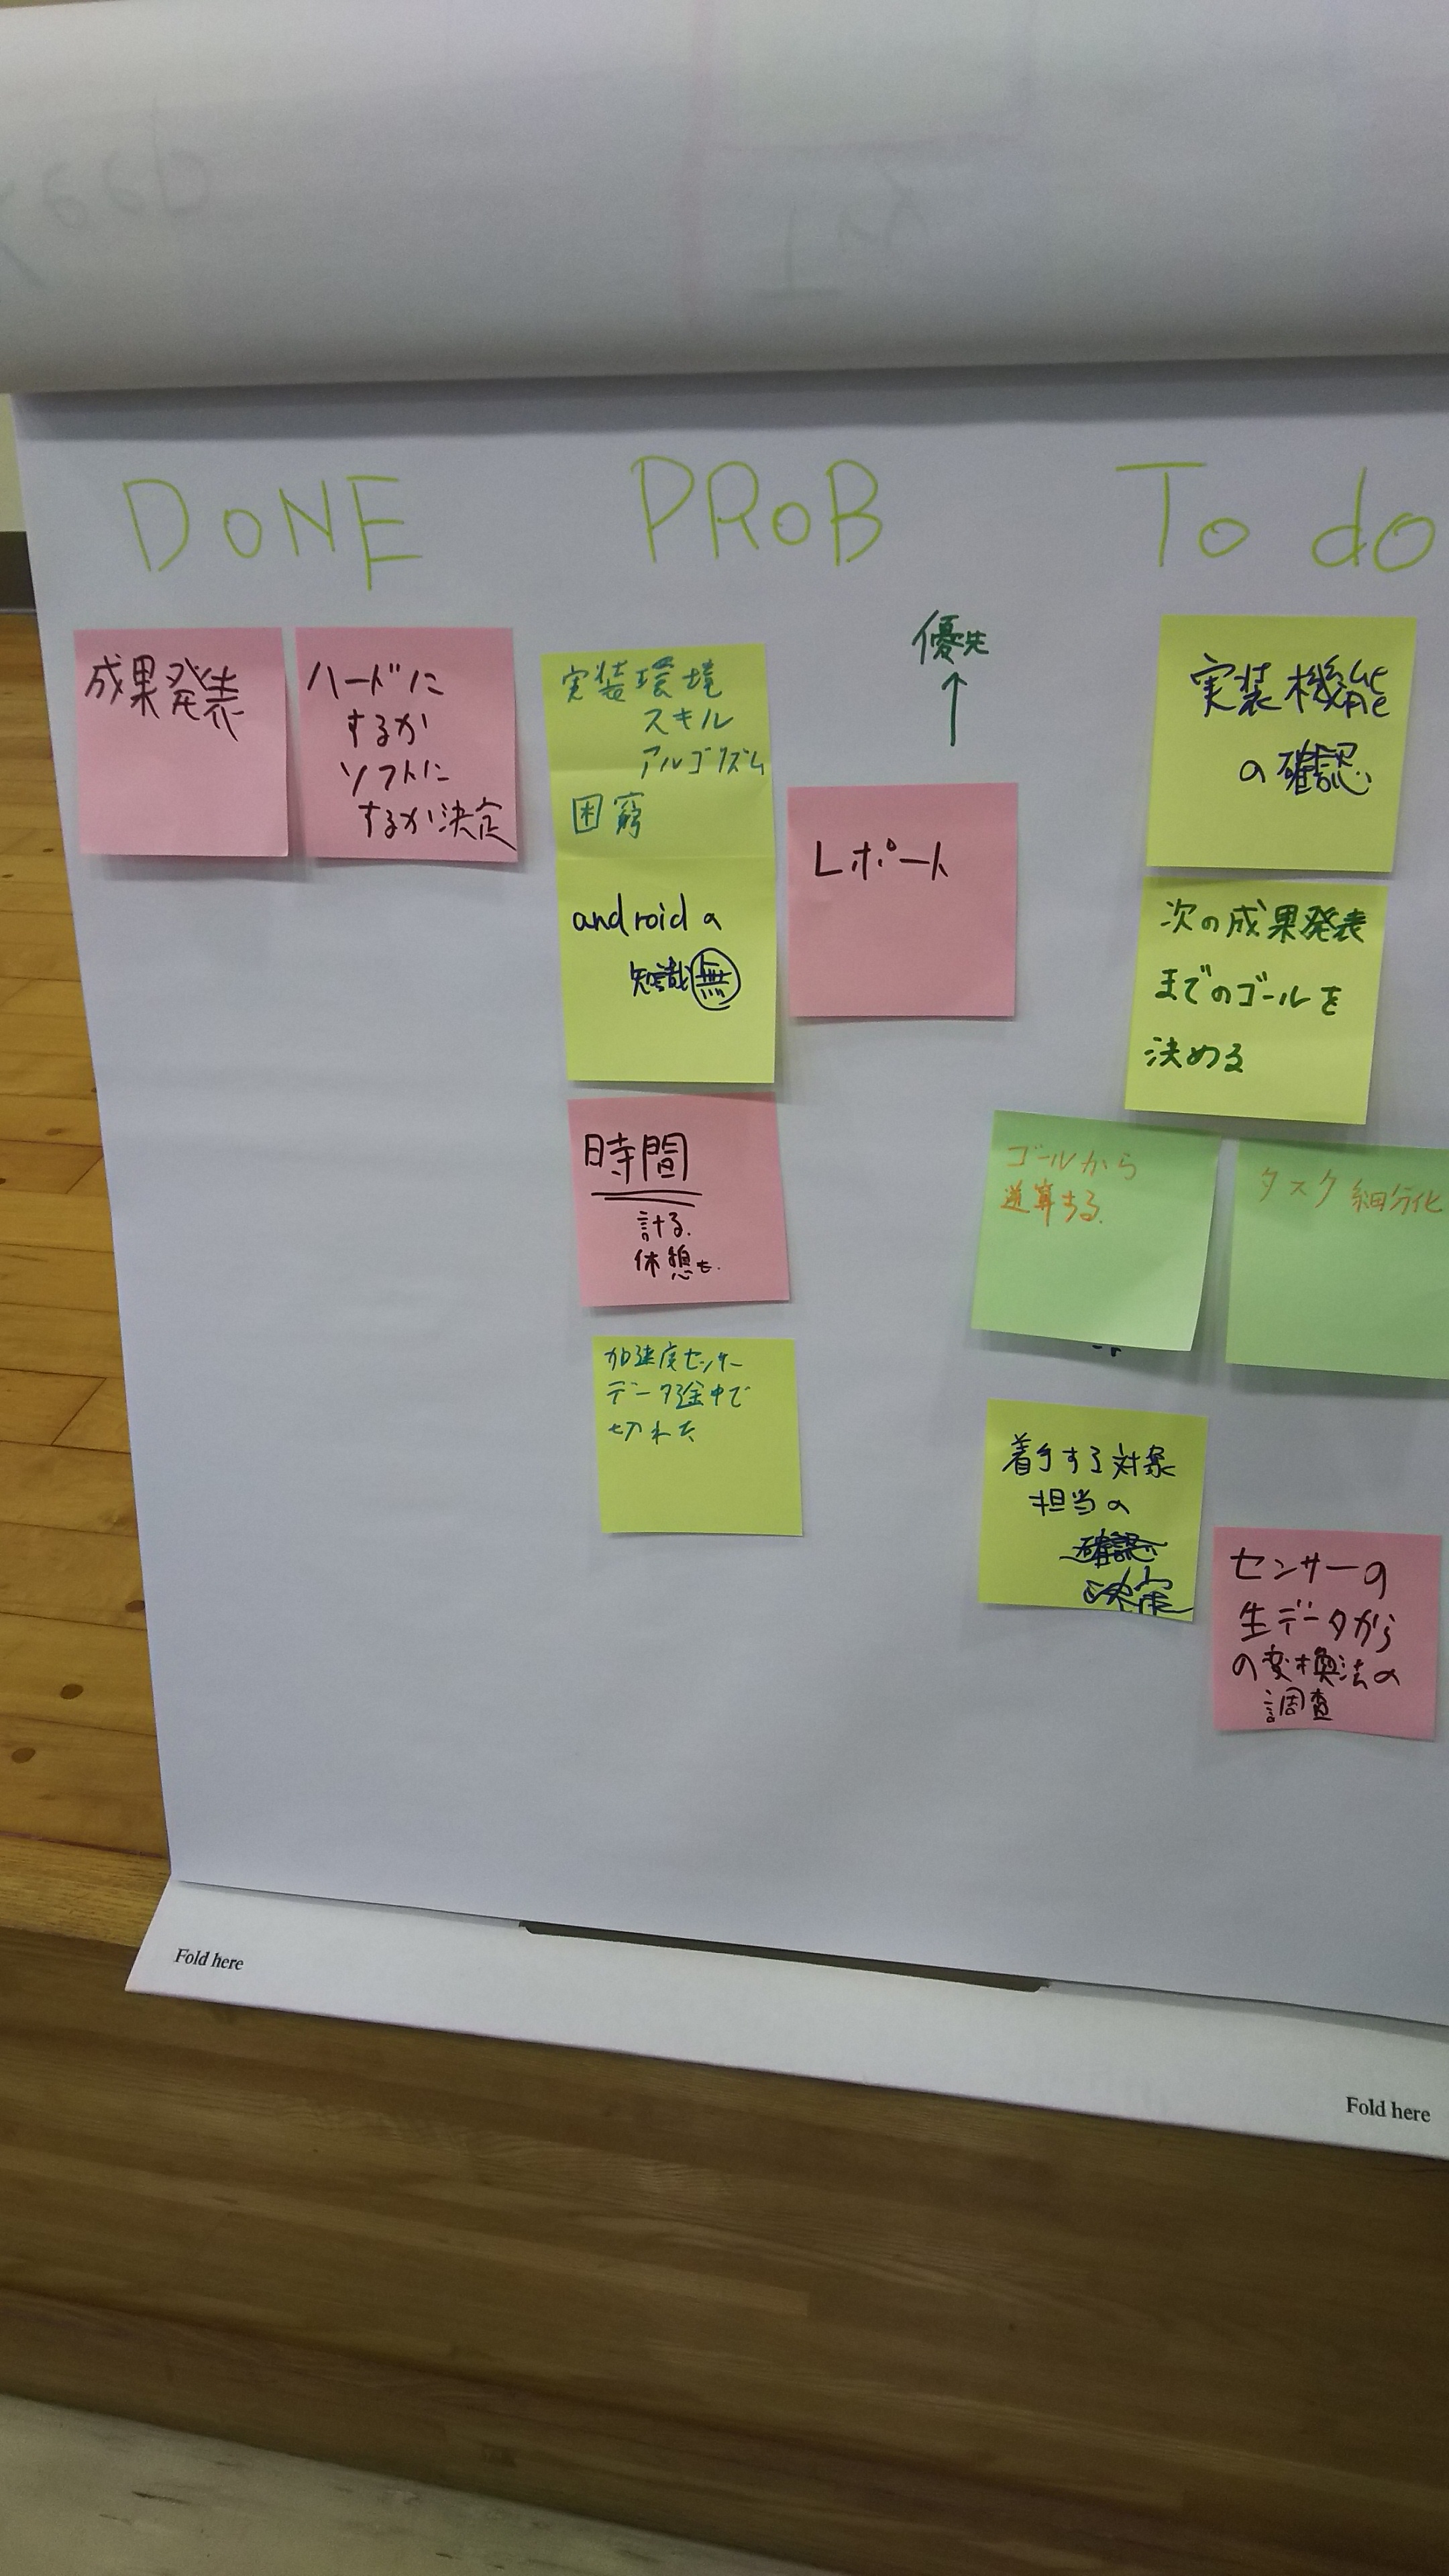 DoNE
成果発表
ハードに
するか
ソフトに
するか決定
PRoB
実装環境
スキル
アルゴリズム
困窮
androidの
知識無
時間
計る.
休憩も.
加速度センサー
データ途中で
切れた
優先
↑
レポート
To do
実装機能
の確認
次の成果発表
までのゴールを
決める
ゴールから
逆算する.
タスク細分化
着手する対象
担当の
確認
決定
センサーの
生データから
の変換法の
調査
Fold here
Fold here